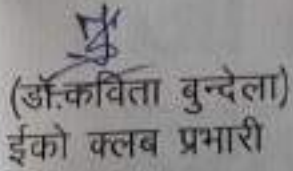 (डॉ.कविता बुन्देला)
ईको क्लब प्रभारी